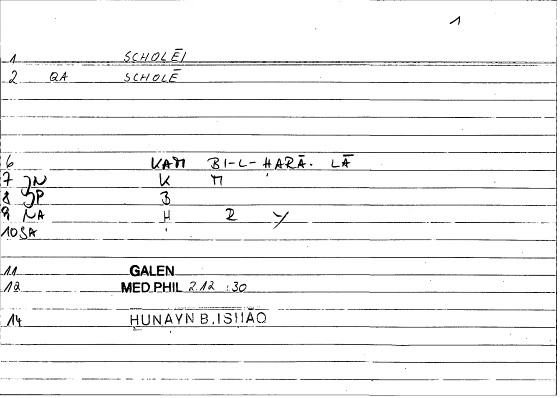 1
1 SCHOLĒI
2 QA SCHOLĒ
6 KAM BI-L-HARĀ. LĀ
7 JN K M '
8 JP B
9 NA H R Y
10 SA '
11 GALEN
12 MED.PHIL 2.12 :30
14 HUNAYN B.ISHĀQ